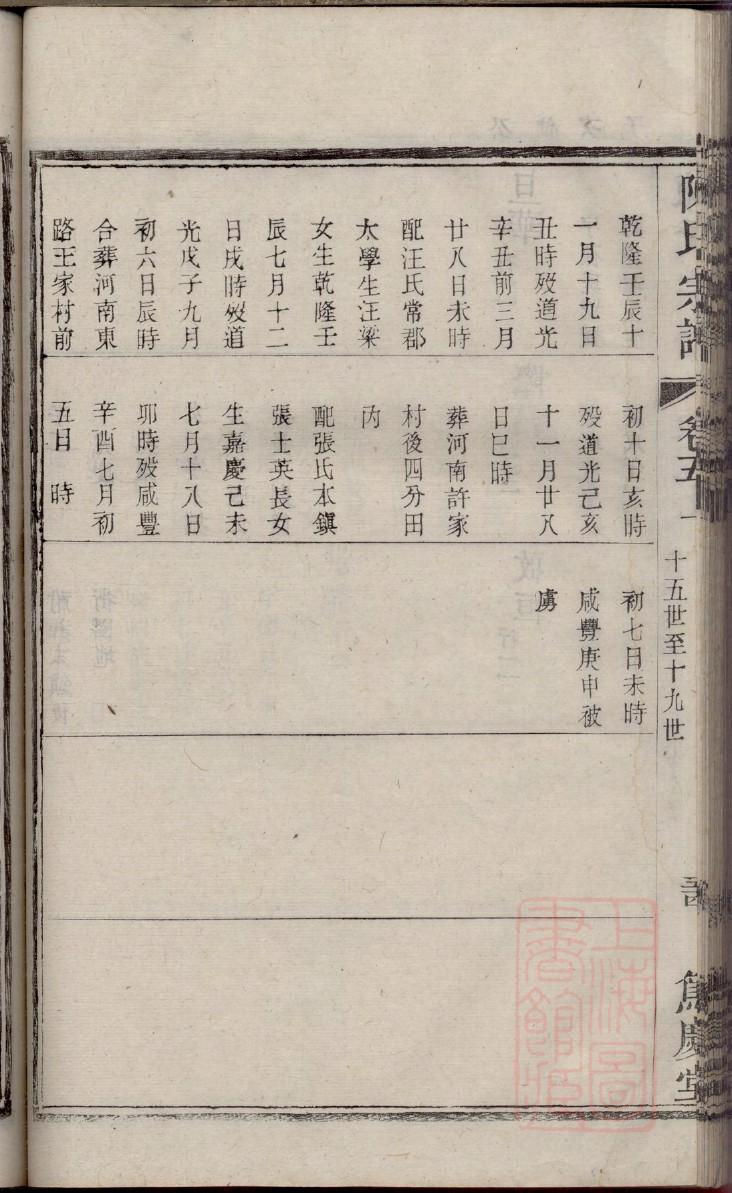 陳氏宗譜
卷五
十五世至十九世
乾隆壬辰十
一月十九日
丑時歿道光
辛丑前三月
廿八日未時
配汪氏常郡
太學生汪粱
女生乾隆壬
辰七月十二
日戌時歿道
光戊子九月
初六日辰時
合葬河南東
路王家村前
初十日亥時
歿道光己亥
十一月廿八
日巳時
葬河南許家
村後四分田
內
配張氏本鎭
張士英長女
生嘉慶己未
七月十八日
卯時歿咸豐
辛酉七月初
五日 時
初七日未時
咸豐庚申被
虜
上海圖
書館